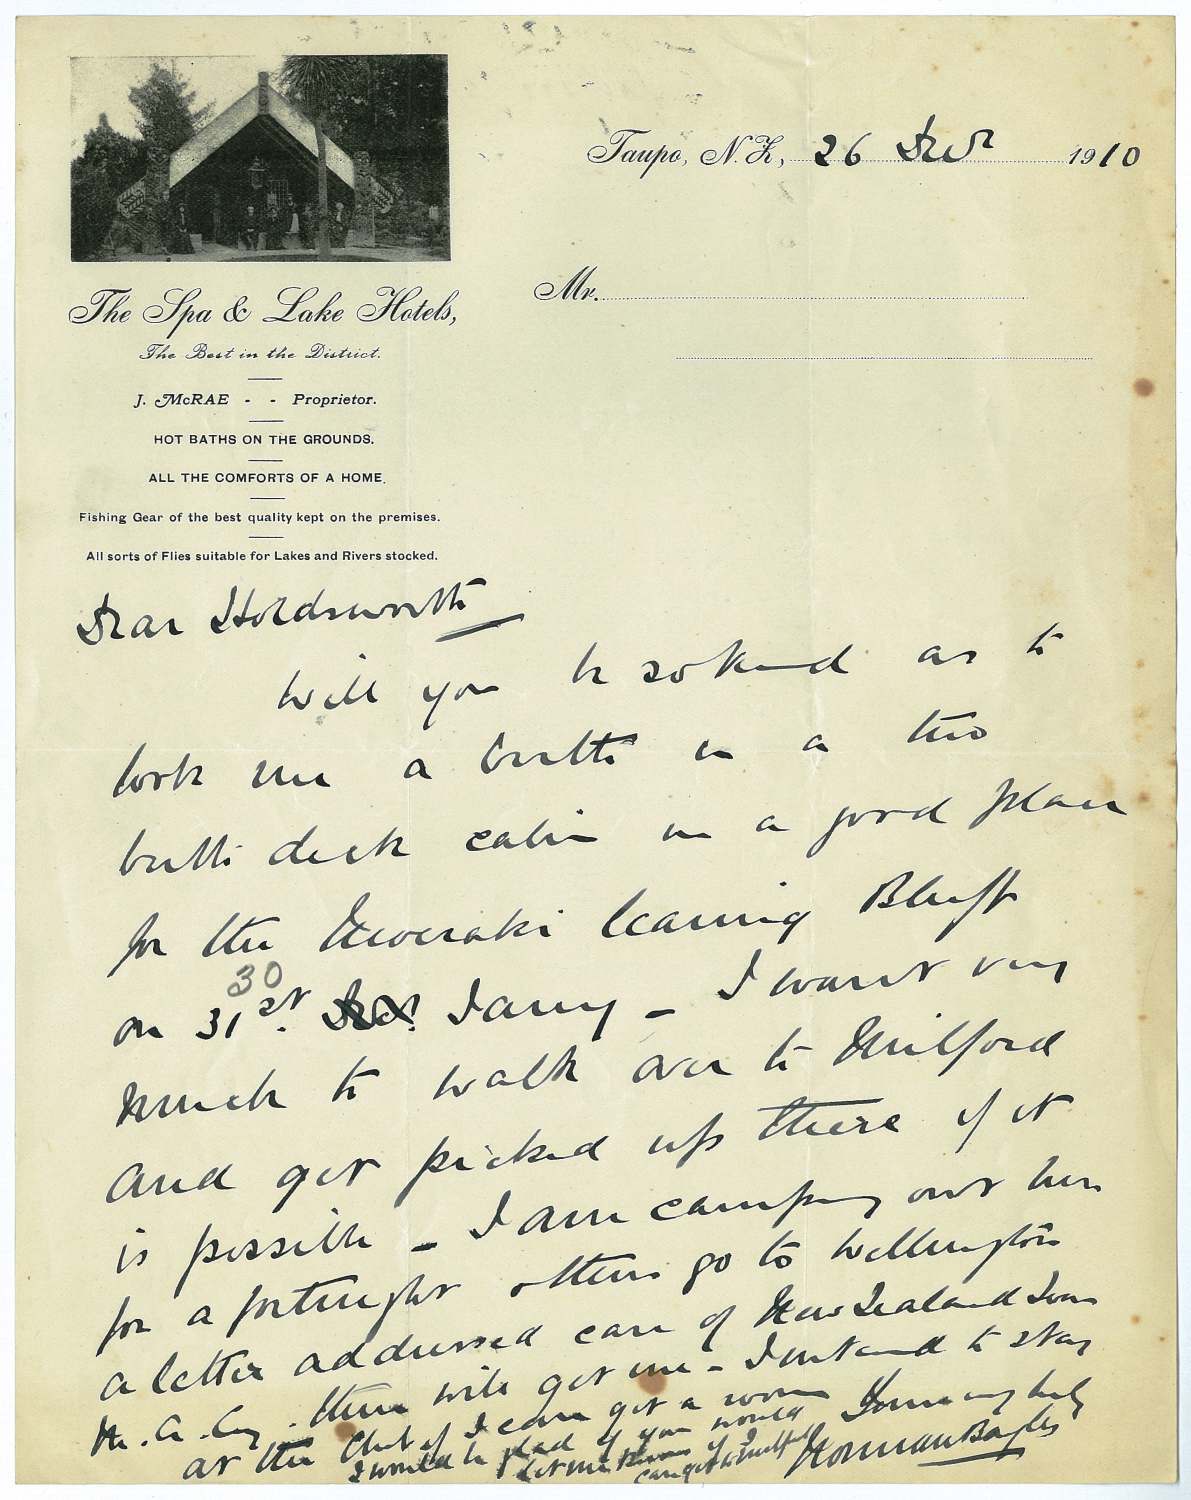 Taupo, N.Z., 26 Decr 1910
Mr.
The Spa & Lake Hotels,
The Best in the District.
J. McRAE - - Proprietor.
HOT BATHS ON THE GROUNDS.
ALL THE COMFORTS OF A HOME.
Fishing Gear of the best quality kept on the premises.
All sorts of Flies suitable for Lakes and Rivers stocked.
Dear Holdsworth
Will you be so kind as to
book me a berth in a two
berth deck cabin in a good place
for the Moeraki leaving Bluff
30
on 31st. Dec. Jany - I want very
much to walk over to Milford
and get picked up there if it
is possible - I am camping out here
for a fortnight & then go to Wellington
a letter addressed care of New Zealand Loan
M. A. Coy. there will get me - I intend to stay
at the Club if I can get a room
I would be glad if you would
let me know if I
can get to Milford
Yours very truly
Norman Bayles